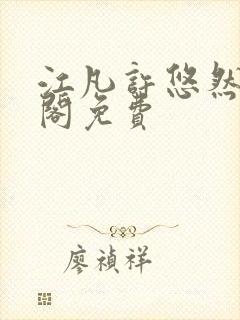 江凡許悠然
閣免費
廖禎祥